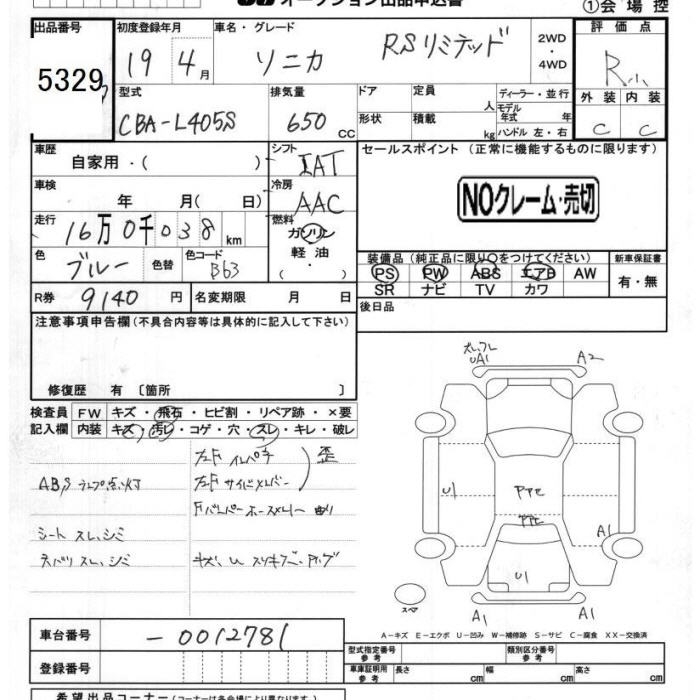 オークション出品申込書
①会場控
出品番号
5329
初度登録年月
19 4月
車名・グレード
ソニカ RSリミテッド
2WD
・
4WD
評価点
R
外装 内装
C C
型式
CBA-L405S
排気量
650 CC
ドア
定員
人
形状
積載
kg
ディーラー・並行
モデル年式 年
ハンドル 左・右
車歴
自家用・( )
シフト
IAT
セールスポイント (正常に機能するものに限ります)
NOクレーム・売切
車検
年 月( 日)
冷房
AAC
走行
16万0千038km
燃料
ガソリン
軽油
( ・ )
色
ブルー
色替
色コード
B63
装備品 (純正品に限り○をつけてください)
PS PW ABS エアB AW
SR ナビ TV カワ
新車保証書
有・無
R券
9140円
名変期限 月 日
後日品
注意事項申告欄(不具合内容等は具体的に記入して下さい)
修復歴 有 〔箇所 〕
検査員記入欄
FW キズ・飛石・ヒビ割・リペア跡・×要
内装 キズ・汚レ・コゲ・穴・スレ・キレ・破レ
ABSランプ点灯
シート スレ、シミ
左F インパネ
左F サイドメンバー
歪
キズ、U
UA1
A2
U1
A1
U1
スペア
A1
A1
A-キズ E-エクボ U-凹み W-補修跡 S-サビ C-腐食 XX-交換済
車台番号
-0012781
登録番号
型式指定番号
参考
類別区分番号
参考
車庫証明用
参考
長さ cm
幅 cm
高さ cm
希望出品コーナー